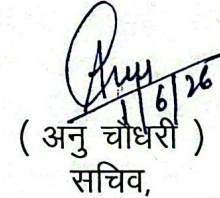 1/6/26
( अनु चौधरी )
सचिव,